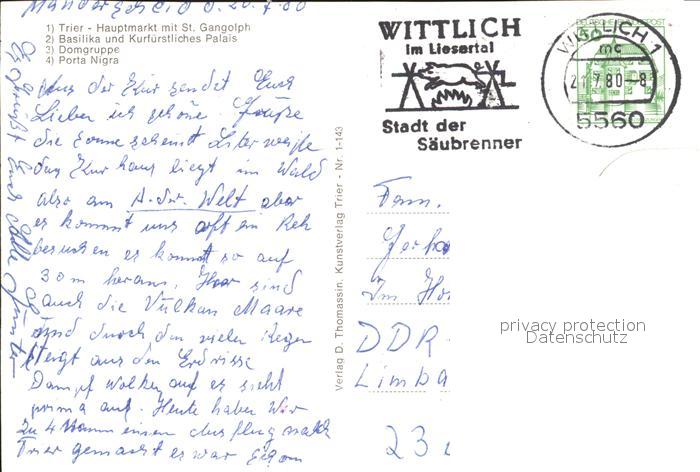 Manderscheid d. 20.7.80
1) Trier - Hauptmarkt mit St. Gangolph
2) Basilika und Kurfürstliches Palais
3) Domgruppe
4) Porta Nigra
Aus der Kur sendet Euch
Lieben ich schöne Grüße
die Sonne scheint
das Kurhaus liegt im Wald
also am A. der Welt aber
es kommt uns oft ein Reh
besuchen es kommt so auf
30 m heran. Hier sind
auch die Vulkan Maare
und durch den vielen Regen
steigt aus den Erdrisse
Dampf Wolken auf es sieht
prima aus. Heute haben Wir
zu 4 Mann einen Ausflug nach
Trier gemacht es war
Es grüßt Euch Alle Günter
Verlag D. Thomassin, Kunstverlag Trier - Nr. 1-143
WITTLICH
im Liesertal
Stadt der
Säubrenner
WITTLICH 1
mc
21.7.80-8
5560
DEUTSCHE BUNDESPOST
50
Fam.
Gerha
Im
DDR
Limba
23
privacy protection
Datenschutz